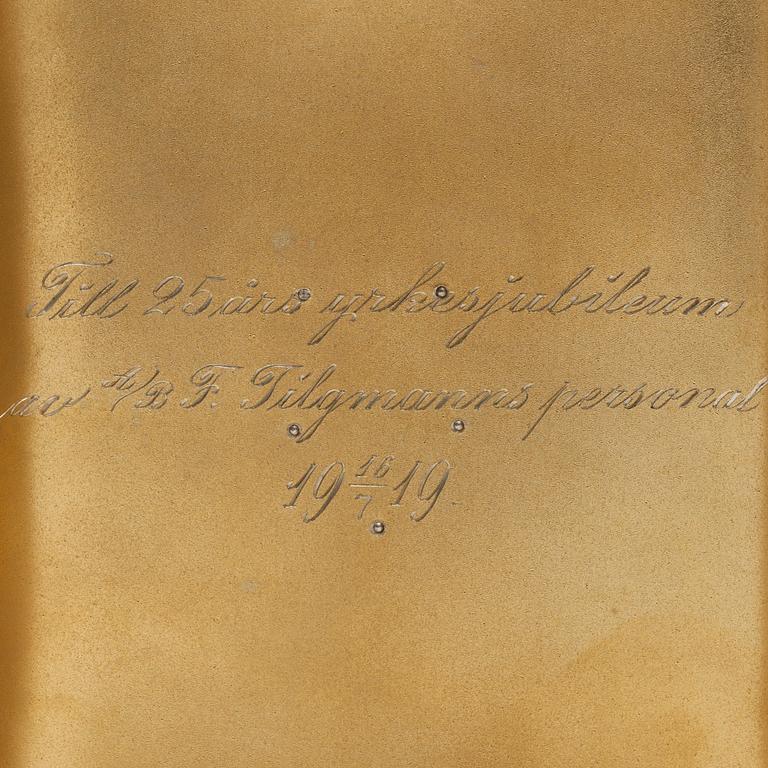 Till 25 års yrkesjubileum
av A/B F. Tilgmanns personal
19 16/7 19.